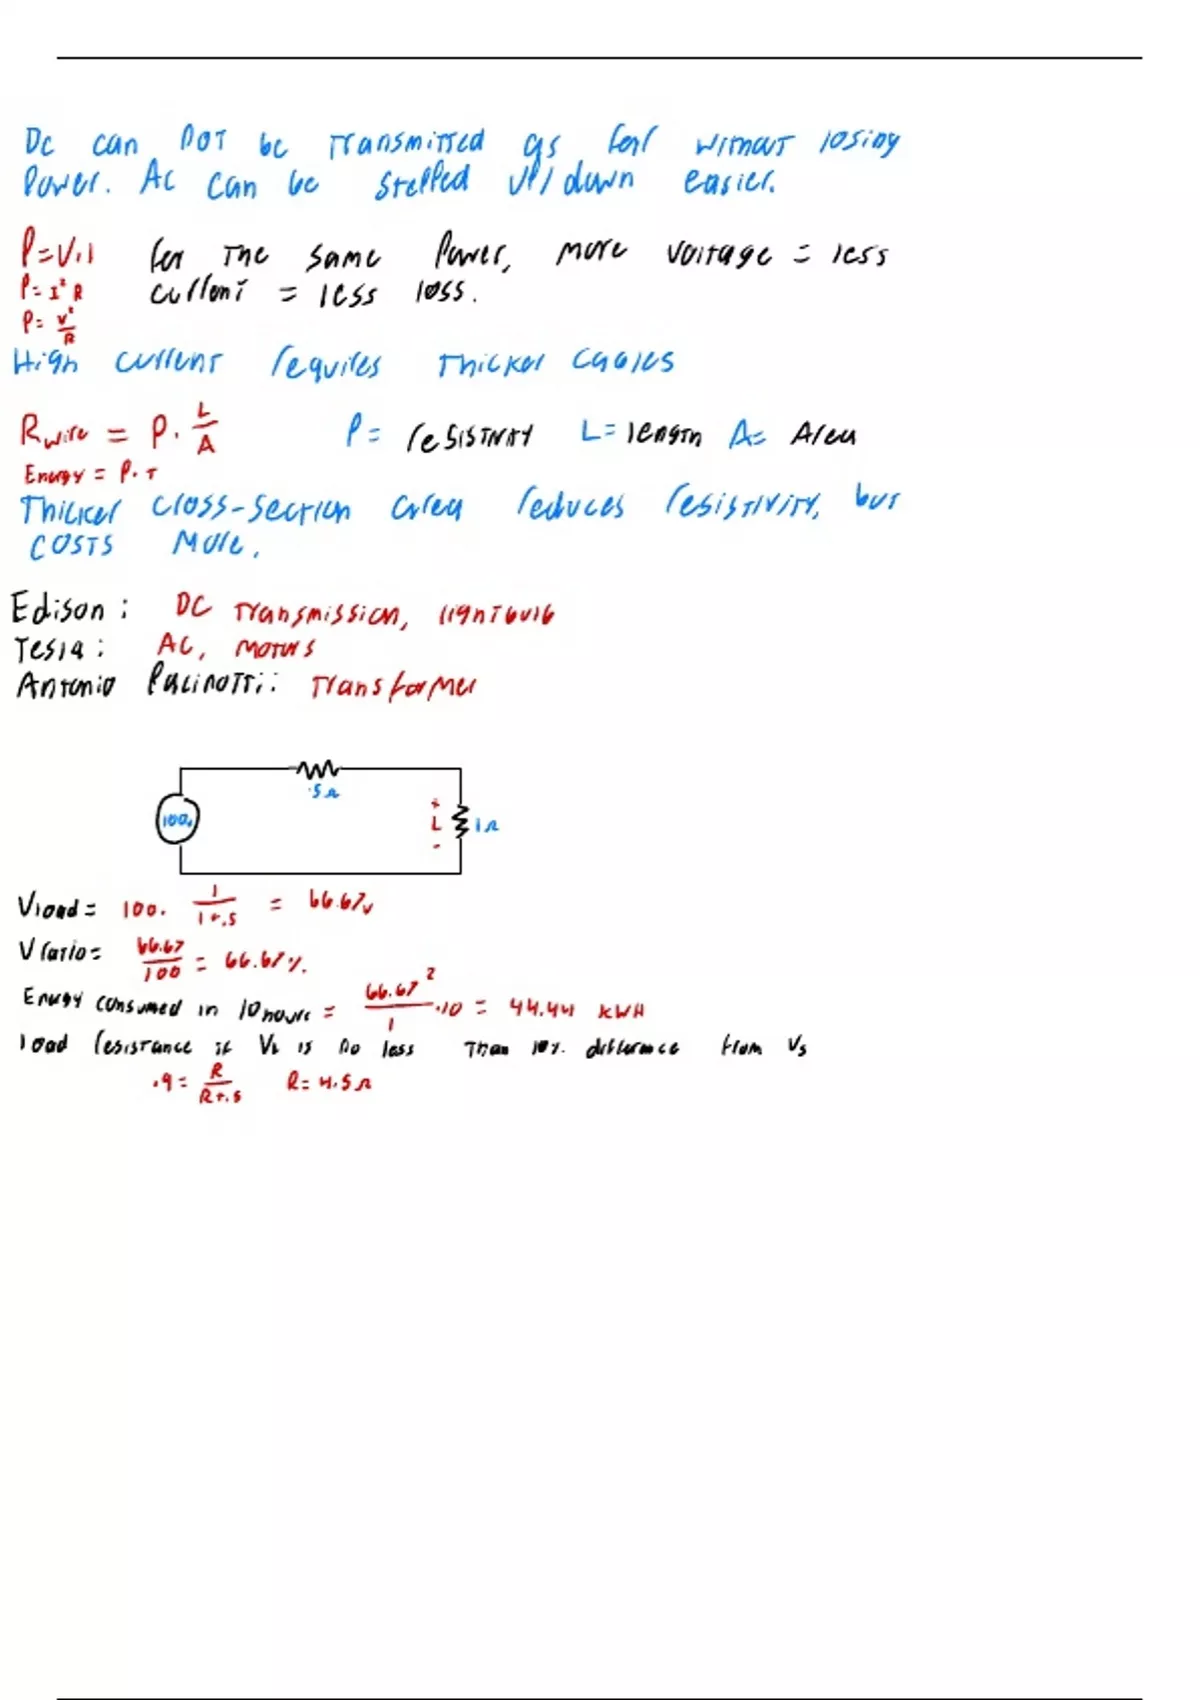 DC can not be transmitted as far without losing
Power. AC can be stepped up/down easier.
P=V.I for the same Power, more voltage = less
P=I²R current = less loss.
P=V²/R
High current requires thicker cables
Rwire = P. L/A P= resistivity L= length A= Area
Energy = P.T
Thicker cross-section area reduces resistivity, but
costs more.
Edison: DC transmission, lightbulb
Tesla: AC, motors
Antonio Pacinotti: Transformer
.5Ω
100v + L - 1Ω
Vload = 100. 1/1+.5 = 66.67v
V ratio = 66.67/100 = 66.67%.
Energy consumed in 10 hours = 66.67²/1 .10 = 44.44 kWH
load resistance if VL is no less than 10% difference from Vs
.9 = R/R+.5 R= 4.5Ω